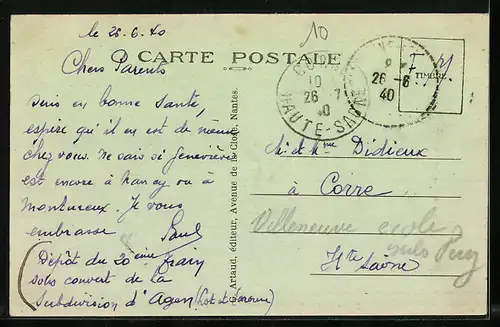 le 26.6.40
10
CARTE POSTALE
Chers Parents
suis en bonne santé,
espère qu'il en est de même
chez vous. Ne sais si Geneviève
est encore à Nancy ou à
Montureux. Je vous
embrasse
Paul
(Dépôt du 20ème Train
sous couvert de la
Subdivision d'Agen (Lot et Garonne)
G. Artaud, éditeur, Avenue de la Close, Nantes.
CORRE
10
26 - 7
40
HAUTE-SAÔNE
26 - 6
40
TIMBRE
F. M.
M. et Mme Didieux
à Corre
Villeneuve école
Hte Saône